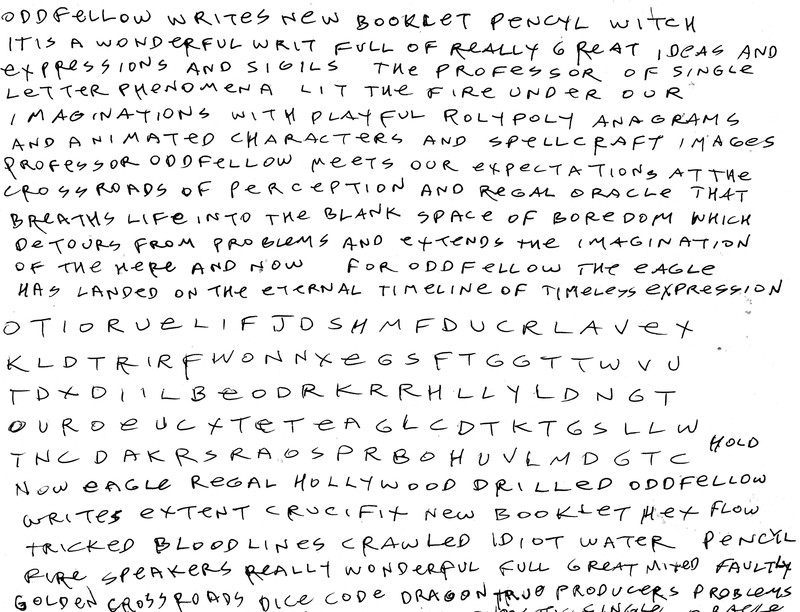 ODDFELLOW WRITES NEW BOOKLET PENCYL WITCH
IT IS A WONDERFUL WRIT FULL OF REALLY GREAT IDEAS AND
EXPRESSIONS AND SIGILS THE PROFESSOR OF SINGLE
LETTER PHENOMENA LIT THE FIRE UNDER OUR
IMAGINATIONS WITH PLAYFUL ROLYPOLY ANAGRAMS
AND ANIMATED CHARACTERS AND SPELLCRAFT IMAGES
PROFESSOR ODDFELLOW MEETS OUR EXPECTATIONS AT THE
CROSSROADS OF PERCEPTION AND REGAL ORACLE THAT
BREATHS LIFE INTO THE BLANK SPACE OF BOREDOM WHICH
DETOURS FROM PROBLEMS AND EXTENDS THE IMAGINATION
OF THE HERE AND NOW FOR ODDFELLOW THE EAGLE
HAS LANDED ON THE ETERNAL TIMELINE OF TIMELESS EXPRESSION
O T I O R U E L I F J D S H M F D U C R L A V E X
K L D T R I R F W O N N X E G S F T G G T T W V U
T D X D I I L B E O D R K R R R H L L Y L D N G T
O U R O E U C X T E T E A G L C D T K T G S L L W
T N C D A K R S R A O S P R B O H U V L M D G T C HOLD
NOW EAGLE REGAL HOLLYWOOD DRILLED ODDFELLOW
WRITES EXTENT CRUCIFIX NEW BOOKLET HEX FLOW
TRICKED BLOODLINES CRAWLED IDIOT WATER PENCYL
FIRE SPEAKERS REALLY WONDERFUL FULL GREAT MIXED FAULTY
GOLDEN CROSSROADS DICE CODE DRAGON TRUE PRODUCERS PROBLEMS
SINGLE